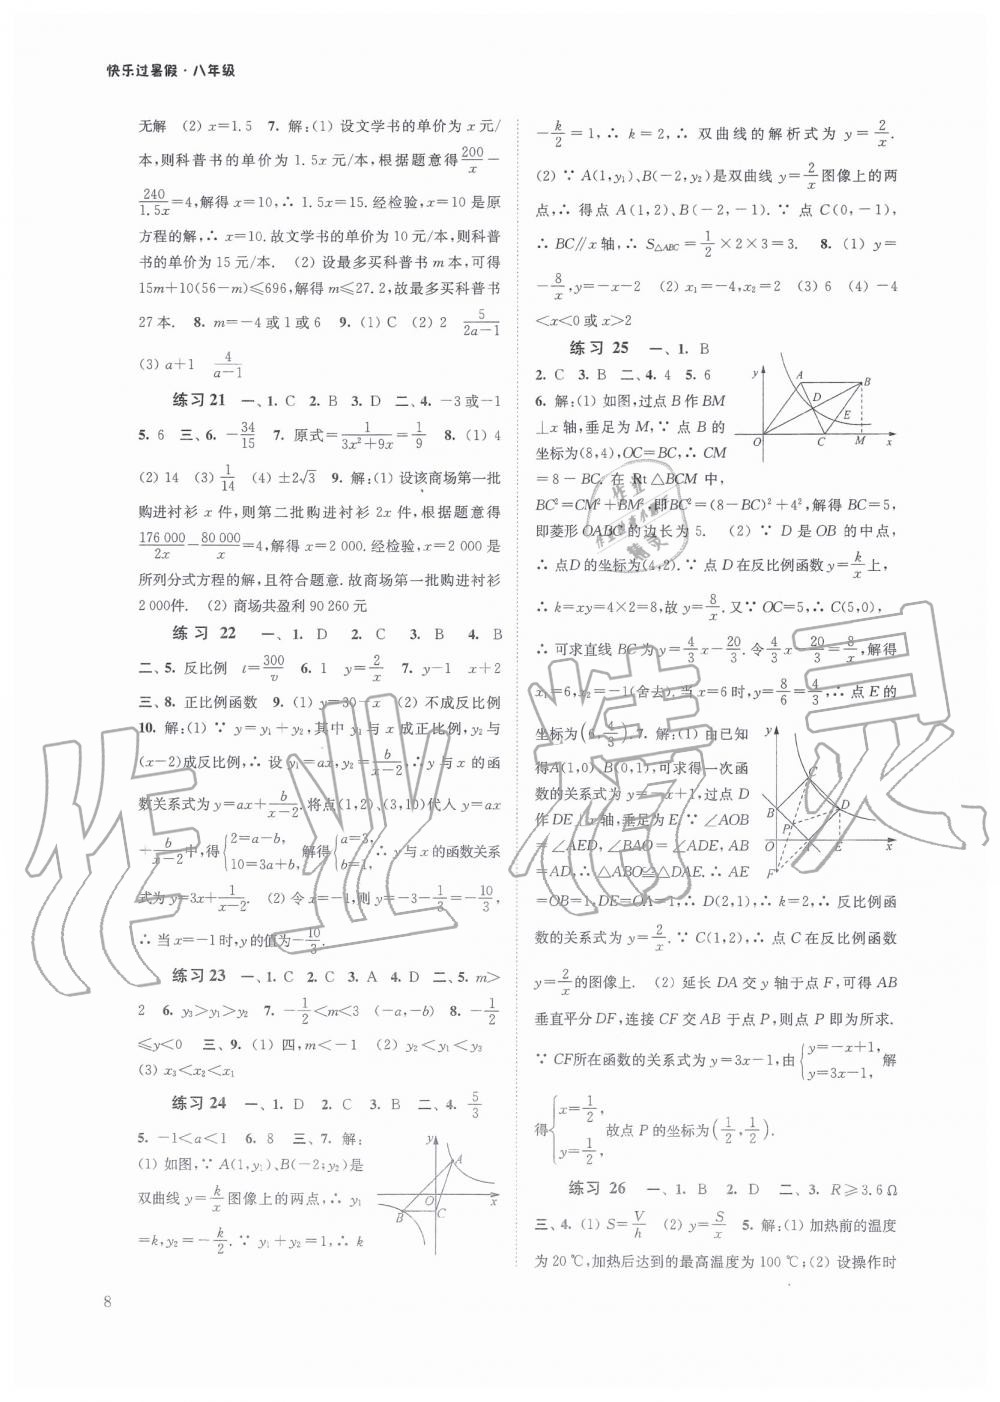 快乐过暑假·八年级
无解 (2) x=1.5 7. 解:(1) 设文学书的单价为 x 元/
本,则科普书的单价为 1.5x 元/本,根据题意得 200/x −
240/1.5x =4,解得 x=10,∴ 1.5x=15. 经检验,x=10 是原
方程的解,∴ x=10. 故文学书的单价为 10 元/本,则科普
书的单价为 15 元/本. (2) 设最多买科普书 m 本,可得
15m+10(56−m)≤696,解得 m≤27.2,故最多买科普书
27 本. 8. m=−4 或 1 或 6 9. (1) C (2) 2 5/(2a−1)
(3) a+1 4/(a−1)
练习 21 一、1. C 2. B 3. D 二、4. −3 或−1
5. 6 三、6. −34/15 7. 原式= 1/(3x²+9x) = 1/9 8. (1) 4
(2) 14 (3) 1/14 (4) ±2√3 9. 解:(1) 设该商场第一批
购进衬衫 x 件,则第二批购进衬衫 2x 件,根据题意得
176 000/2x − 80 000/x =4,解得 x=2 000. 经检验,x=2 000 是
所列分式方程的解,且符合题意. 故商场第一批购进衬衫
2 000件. (2) 商场共盈利 90 260 元
练习 22 一、1. D 2. C 3. B 4. B
二、5. 反比例 t=300/v 6. 1 y=2/x 7. y−1 x+2
三、8. 正比例函数 9. (1) y=30−x (2) 不成反比例
10. 解:(1) ∵ y=y₁+y₂,其中 y₁与 x 成正比例,y₂与
(x−2)成反比例,∴ 设 y₁=ax,y₂= b/(x−2),∴ y 与 x 的函
数关系式为 y=ax+ b/(x−2). 将点(1,2)、(3,10)代入 y=ax
+ b/(x−2) 中,得{2=a−b, 10=3a+b, 解得{a=3, b=1,∴ y 与 x 的函数关系
式为 y=3x+ 1/(x−2). (2) 令 x=−1,则 y=−3− 1/3 =− 10/3,
∴ 当 x=−1 时,y 的值为− 10/3.
练习 23 一、1. C 2. C 3. A 4. D 二、5. m>
2 6. y₃>y₁>y₂ 7. − 1/2 <m<3 (−a,−b) 8. − 1/2
≤y<0 三、9. (1) 四,m<−1 (2) y₂<y₁<y₃
(3) x₃<x₂<x₁
练习 24 一、1. D 2. C 3. B 二、4. 5/3
5. −1<a<1 6. 8 三、7. 解:
(1) 如图,∵ A(1,y₁)、B(−2,y₂)是
双曲线 y= k/x 图像上的两点,∴ y₁
=k,y₂=− k/2. ∵ y₁+y₂=1,∴ k
y A O x B C
− k/2 =1,∴ k=2,∴ 双曲线的解析式为 y= 2/x.
(2) ∵ A(1,y₁)、B(−2,y₂)是双曲线 y= 2/x 图像上的两
点,∴ 得点 A(1,2)、B(−2,−1). ∵ 点 C(0,−1),
∴ BC∥x 轴,∴ S△ABC= 1/2 ×2×3=3. 8. (1) y=
− 8/x,y=−x−2 (2) x₁=−4,x₂=2 (3) 6 (4) −4
<x<0 或 x>2
练习 25 一、1. B
2. C 3. B 二、4. 4 5. 6
6. 解:(1) 如图,过点 B 作 BM
⊥x 轴,垂足为 M,∵ 点 B 的
坐标为(8,4),OC=BC,∴ CM
=8−BC. 在 Rt△BCM 中,
y A B D E O C M x
BC²=CM²+BM²,即BC²=(8−BC)²+4²,解得 BC=5,
即菱形 OABC 的边长为 5. (2) ∵ D 是 OB 的中点,
∴ 点D 的坐标为(4,2). ∵ 点 D 在反比例函数 y= k/x 上,
∴ k=xy=4×2=8,故 y= 8/x. 又∵ OC=5,∴ C(5,0),
∴ 可求直线 BC 为 y= 4/3 x− 20/3. 令 4/3 x− 20/3 = 8/x,解得
x₁=6,x₂=−1(舍去). 当 x=6 时,y= 8/6 = 4/3,∴ 点 E 的
坐标为(6, 4/3). 7. 解:(1) 由已知
得A(1,0)、B(0,1),可求得一次函
数的关系式为 y=−x+1,过点 D
作DE⊥x轴,垂足为 E. ∵ ∠AOB
=∠AED,∠BAO=∠ADE,AB
=AD,∴ △ABO≌△DAE. ∴ AE
=OB=1,DE=OA=1,∴ D(2,1),∴ k=2,∴ 反比例函
y C B D P O E x F
数的关系式为 y= 2/x. ∵ C(1,2),∴ 点 C 在反比例函数
y= 2/x 的图像上. (2) 延长 DA 交 y 轴于点 F,可得 AB
垂直平分 DF,连接 CF 交 AB 于点 P,则点 P 即为所求.
∵ CF所在函数的关系式为 y=3x−1,由{y=−x+1, y=3x−1, 解
得{x= 1/2, y= 1/2, 故点 P 的坐标为( 1/2, 1/2 ).
练习 26 一、1. B 2. D 二、3. R≥3.6 Ω
三、4. (1) S= V/h (2) y= S/x 5. 解:(1) 加热前的温度
为 20 ℃,加热后达到的最高温度为 100 ℃;(2) 设操作时
8
作业精灵